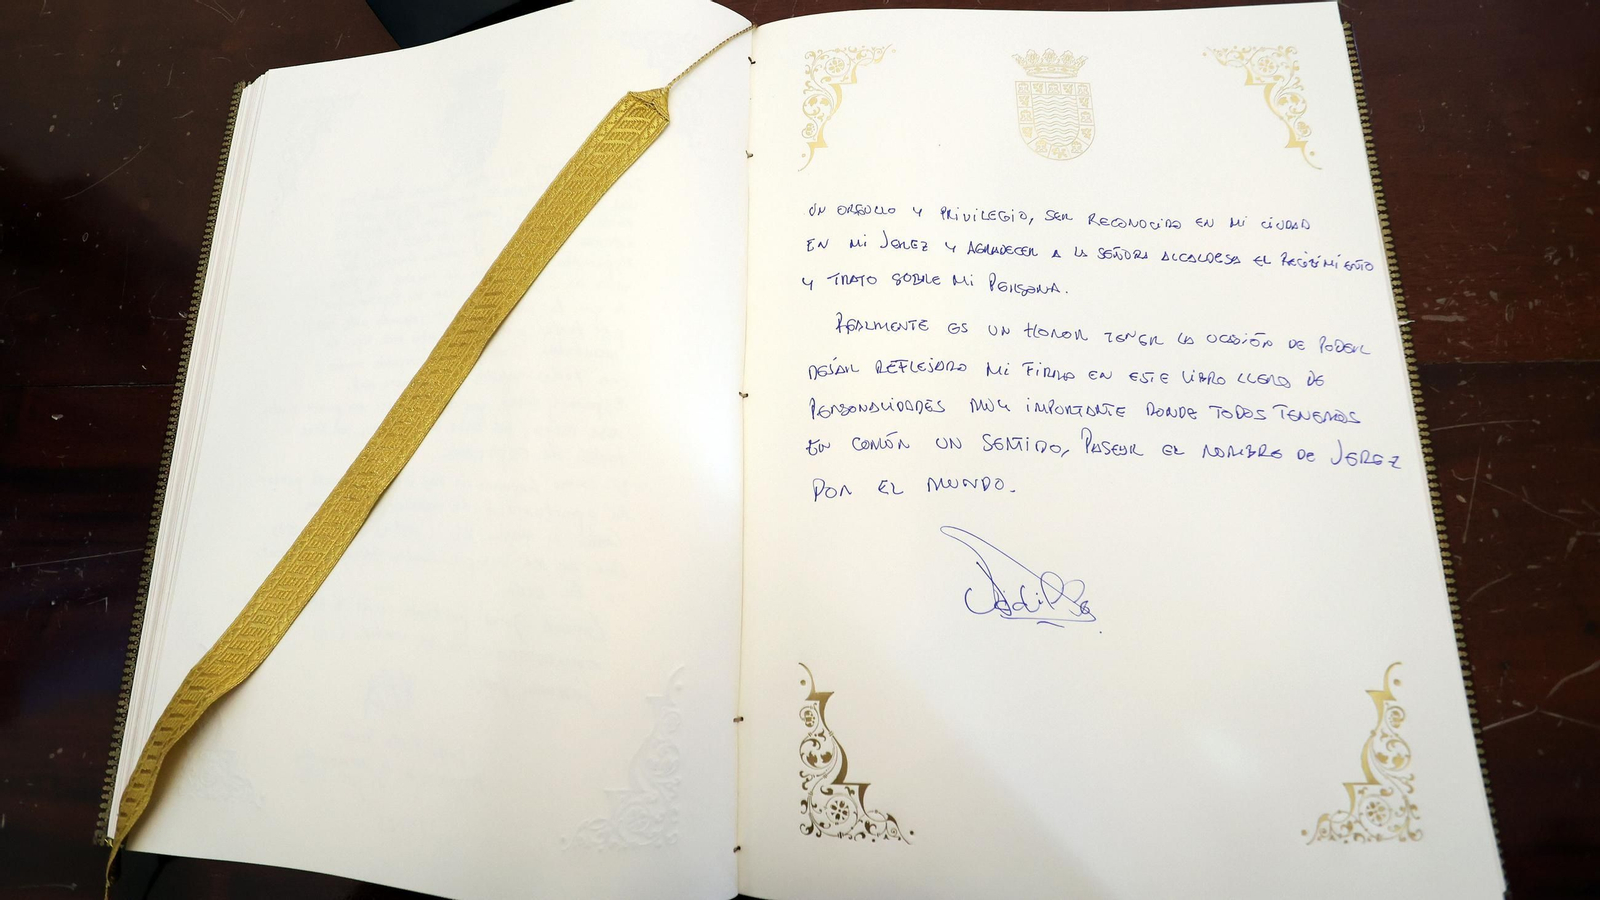 UN ORGULLO Y PRIVILEGIO, SER RECONOCIDO EN MI CIUDAD
EN MI JEREZ Y AGRADECER A LA SEÑORA ALCALDESA EL RECIBIMIENTO
Y TRATO SOBRE MI PERSONA.
REALMENTE ES UN HONOR TENER LA OCASIÓN DE PODER
DEJAR REFLEJADO MI FIRMA EN ESTE LIBRO LLENO DE
PERSONALIDADES MUY IMPORTANTE DONDE TODOS TENEMOS
EN COMÚN UN SENTIDO, PASEAR EL NOMBRE DE JEREZ
POR EL MUNDO.